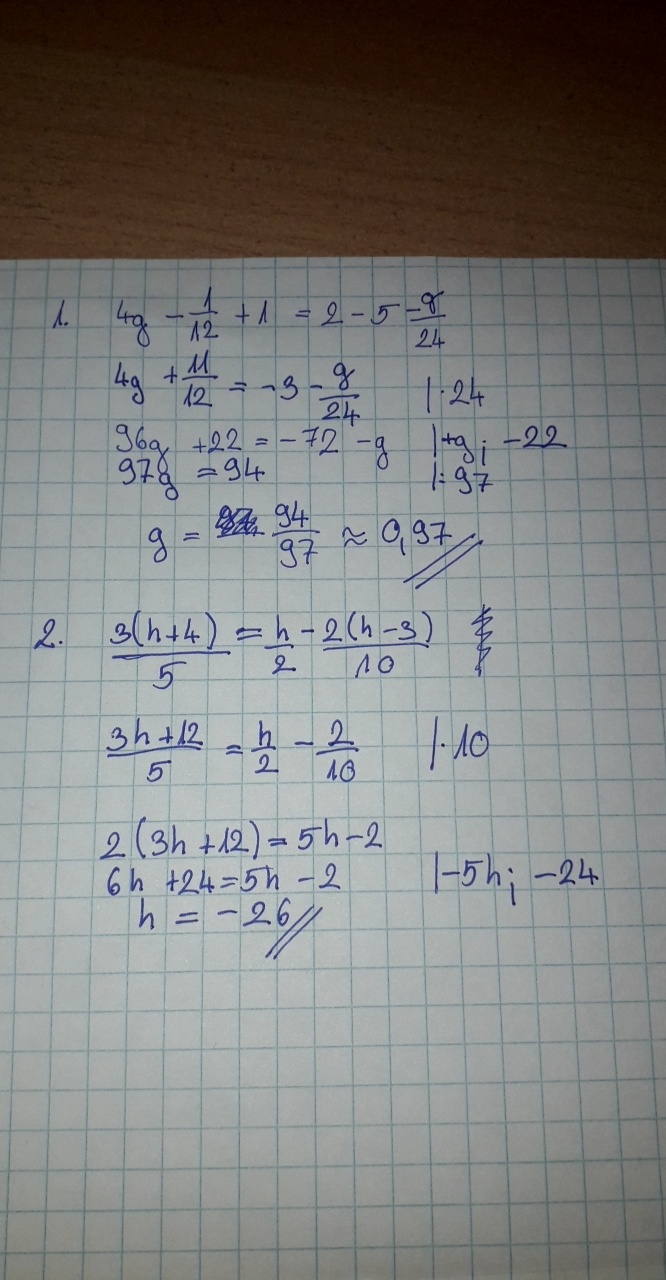 1. 4g - 1/12 + 1 = 2 - 5 - g/24
4g + 11/12 = -3 - g/24 |·24
96g + 22 = -72 - g |+g; -22
97g = 94 |:97
g = 94/97 ≈ 0,97
2. 3(h+4)/5 = h/2 - 2(h-3)/10
3h+12/5 = h/2 - 2/10 |·10
2(3h+12) = 5h-2
6h +24 = 5h -2 |-5h; -24
h = -26